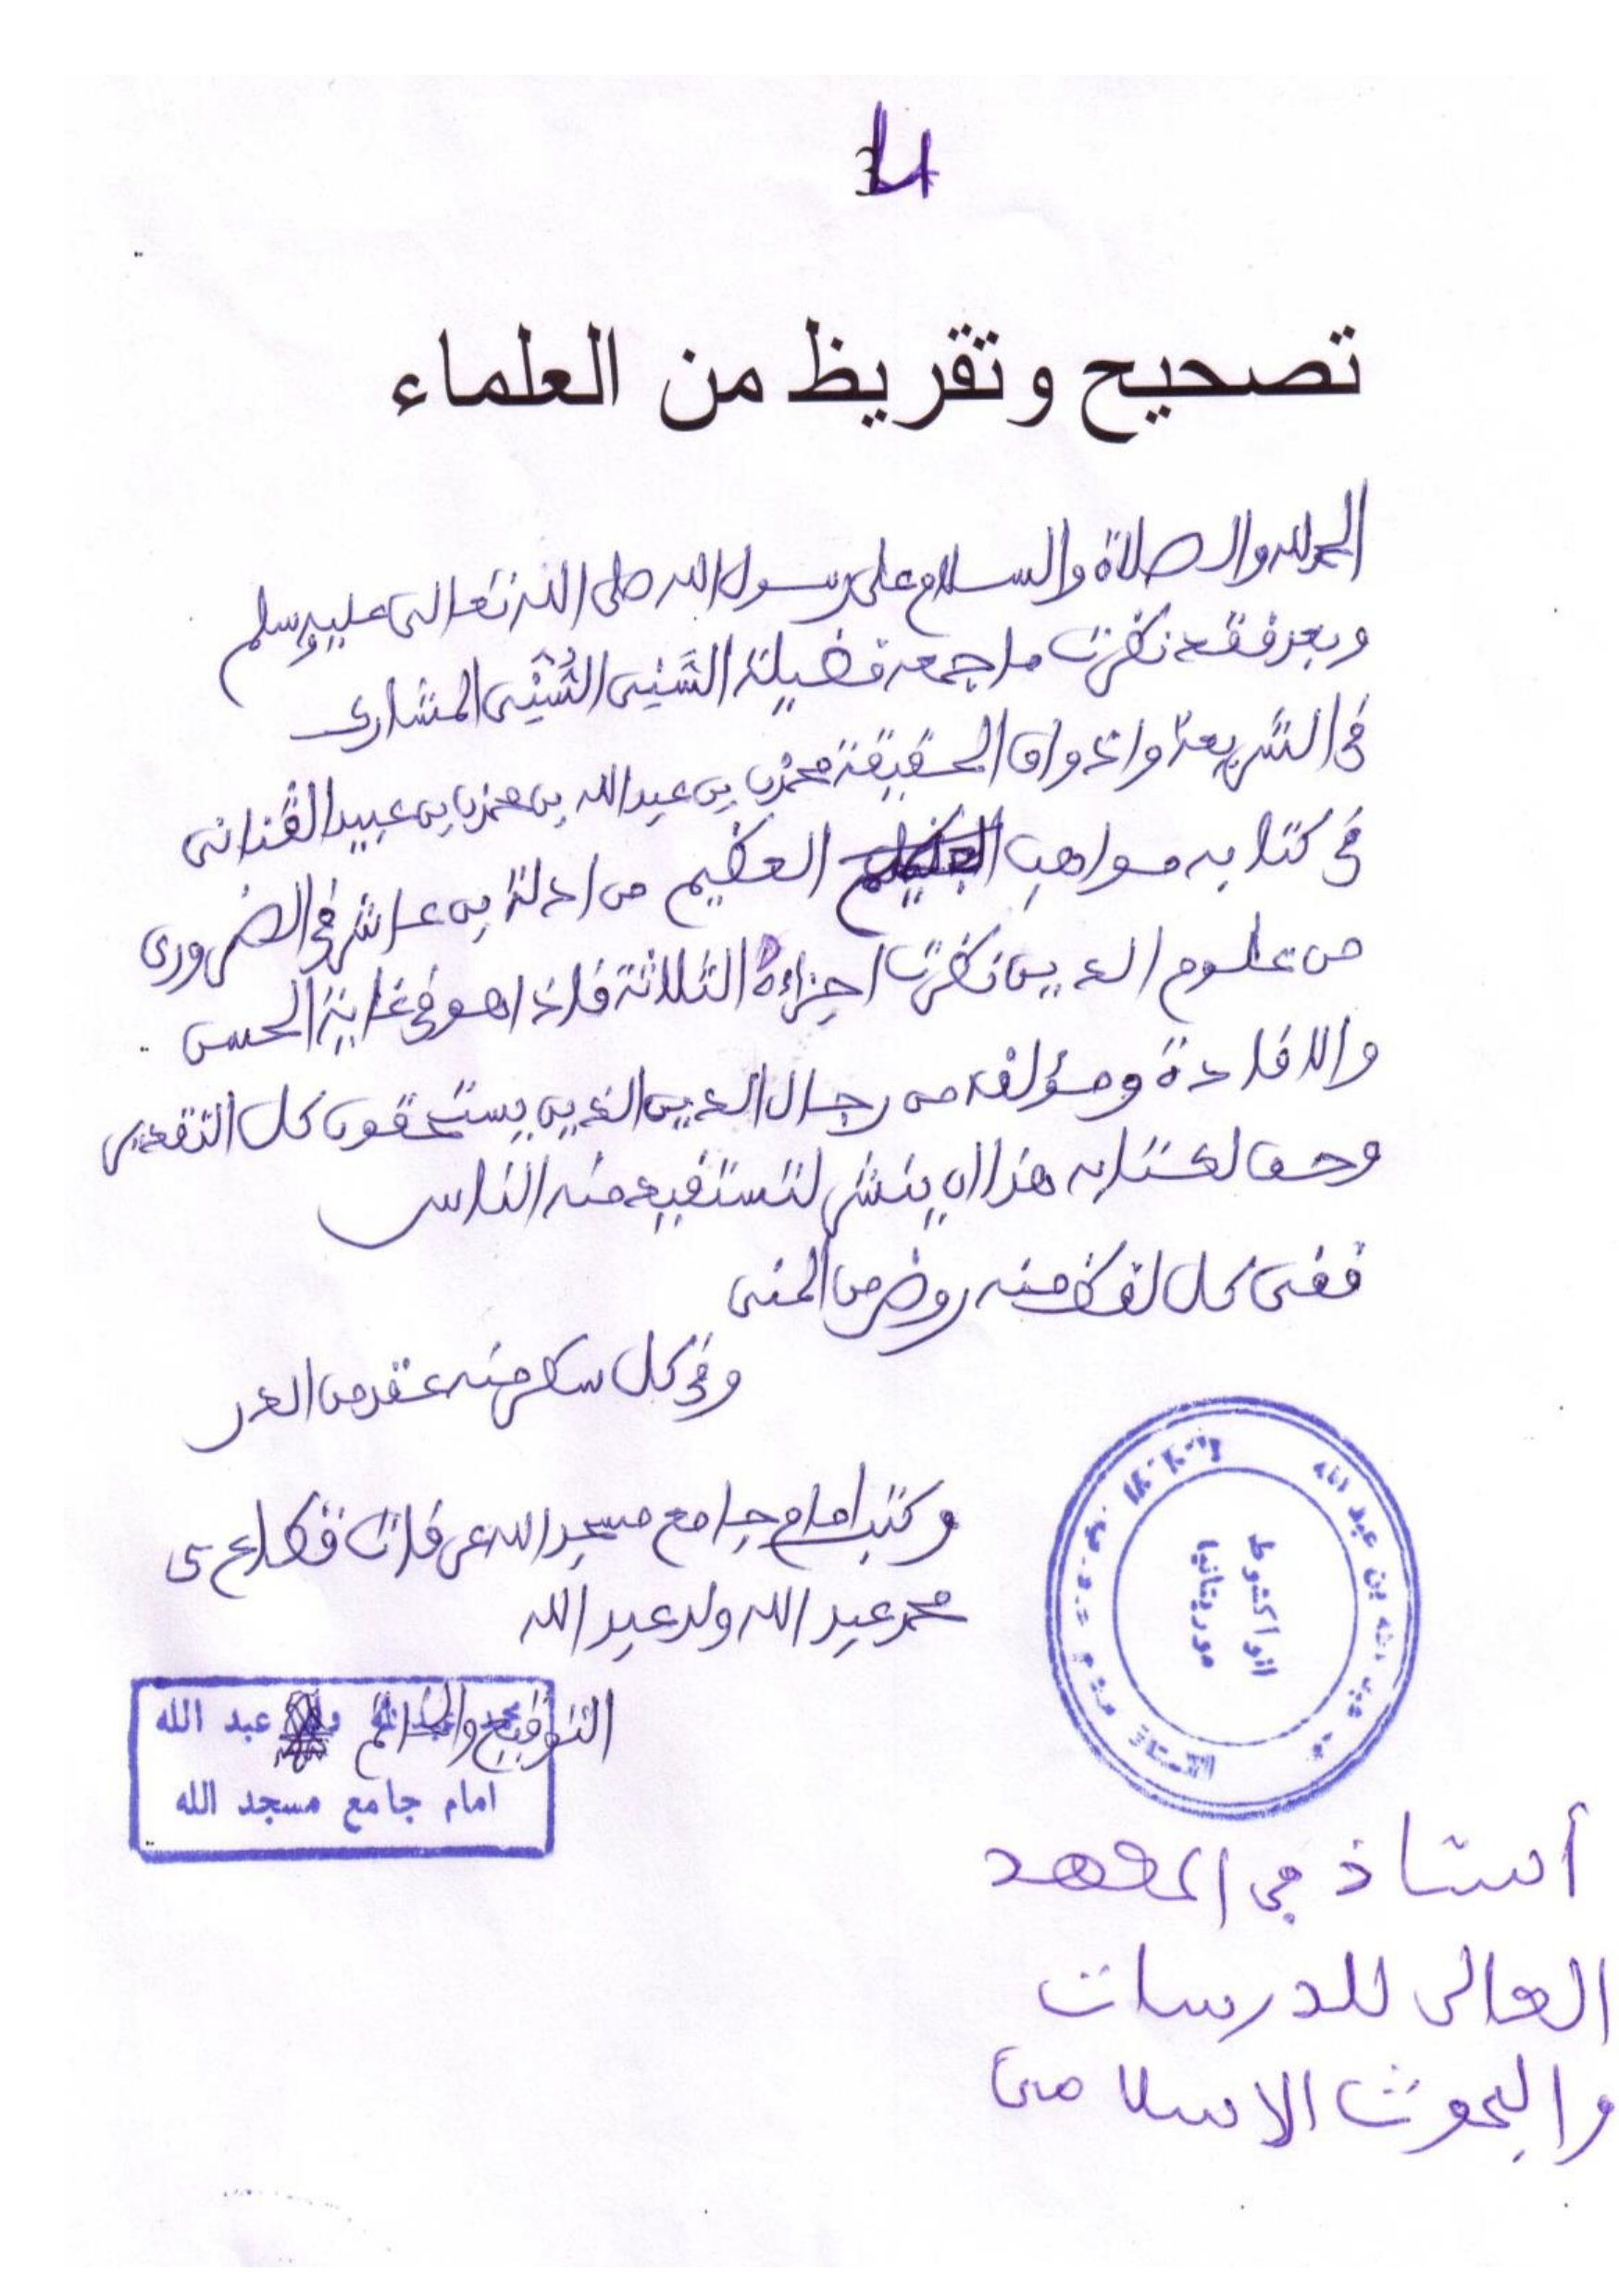 4
تصحيح وتقريظ من العلماء
الحمد لله والصلاة والسلام على رسول الله صلى الله تعالى عليه وسلم
وبعد فقد نظرت ما جمعه فضيلة الشيخ المشارك
في الشريعة واذواق الحقيقة محمذن بن عبد الله بن محمذن بن عبيد
في كتابه مواهب العظيم من ادلة بن عاشر في الضروري
من علوم الدين نظرت اجزاءه الثلاثة فاذا هو في غاية الحسن
والافادة ومؤلفه من رجال الدين الذين يستحقون كل التقدير
وحق لكتابه هذا ان ينشر لتستفيد منه الناس
ففي كل لفظ منه روض من المنى
وفي كل سطر منه عقد من الدر
وكتب امام جامع مسجد الله عرفات
محمد عبد الله ولد عبد الله
التوقيع والخاتم
محمد عبد الله ولد عبد الله
امام جامع مسجد الله
بن عبد الله
انواكشوط
موريتانيا
أستاذ في المعهد
العالى للدرسات
والبحوث الاسلامية